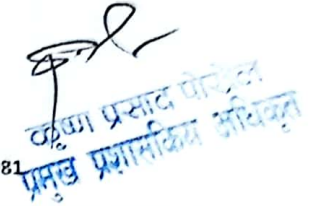 कृष्ण प्रसाद पोखरेल
81
प्रमुख प्रशासकिय अधिकृत